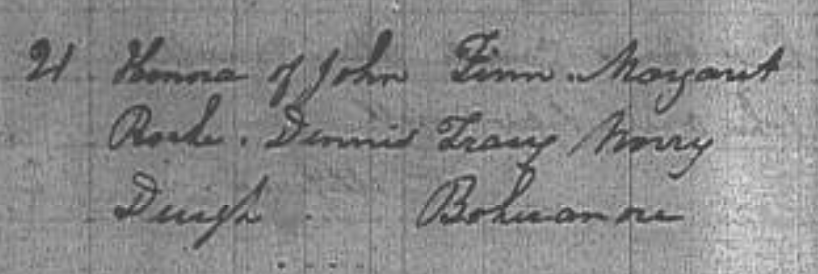 21 Honora of John Finn. Margaret
Roche. Dennis Tracy Norry
Duigh Bohernanore